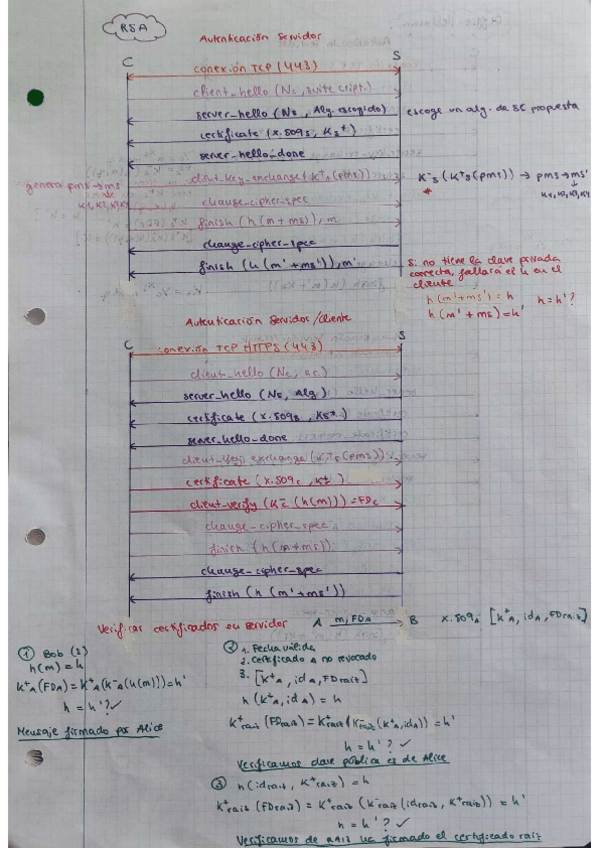 RSA
Autenticación Servidor
C S
conexión TCP (443)
client_hello (Nc, suite cript.)
server_hello (Ns, Alg. escogido) escoge un alg. de SC propuesta
certificate (x.509s, Ks+)
server_hello_done
client_key_exchange (K+s(pms)) K-s (K+s(pms)) → pms → ms'
genera pms → ms K1, K2, K3, K4
K1, K2, K3, K4
change_cipher_spec
finish (h(m+ms)), m
change_cipher_spec
finish (h(m'+ms')), m'
Si no tiene la clave privada
correcta, fallará el h en el
cliente
h(m'+ms') = h
h(m'+ms) = h' h=h'?
Autenticación Servidor/cliente
C S
conexión TCP HTTPS (443)
client_hello (Nc, sc)
server_hello (Ns, Alg)
certificate (x.509s, Ks+)
server_hello_done
client_key_exchange (K+s(pms))
certificate (x.509c, Kc+)
client_verify (K-c (h(m))) = FDc
change_cipher_spec
finish (h(m+ms))
change_cipher_spec
finish (h(m'+ms'))
Verificar certificados en servidor A m, FDA B x.509A [K+A, idA, FDraiz]
① Bob (B)
h(m) = h
K+A(FDA) = K+A(K-A(h(m))) = h'
h = h'? ✓
Mensaje firmado por Alice
② 1. Fecha válida
2. Certificado A no revocado
3. [K+A, idA, FDraiz]
h(K+A, idA) = h
K+raiz(FDraiz) = K+raiz(K-raiz(K+A, idA)) = h'
h = h'? ✓
Verificamos clave pública es de Alice
③ h(idraiz, K+raiz) = h
K+raiz(FDraiz) = K+raiz(K-raiz(idraiz, K+raiz)) = h'
h = h'? ✓
Verificamos de RAIZ ha firmado el certificado raíz